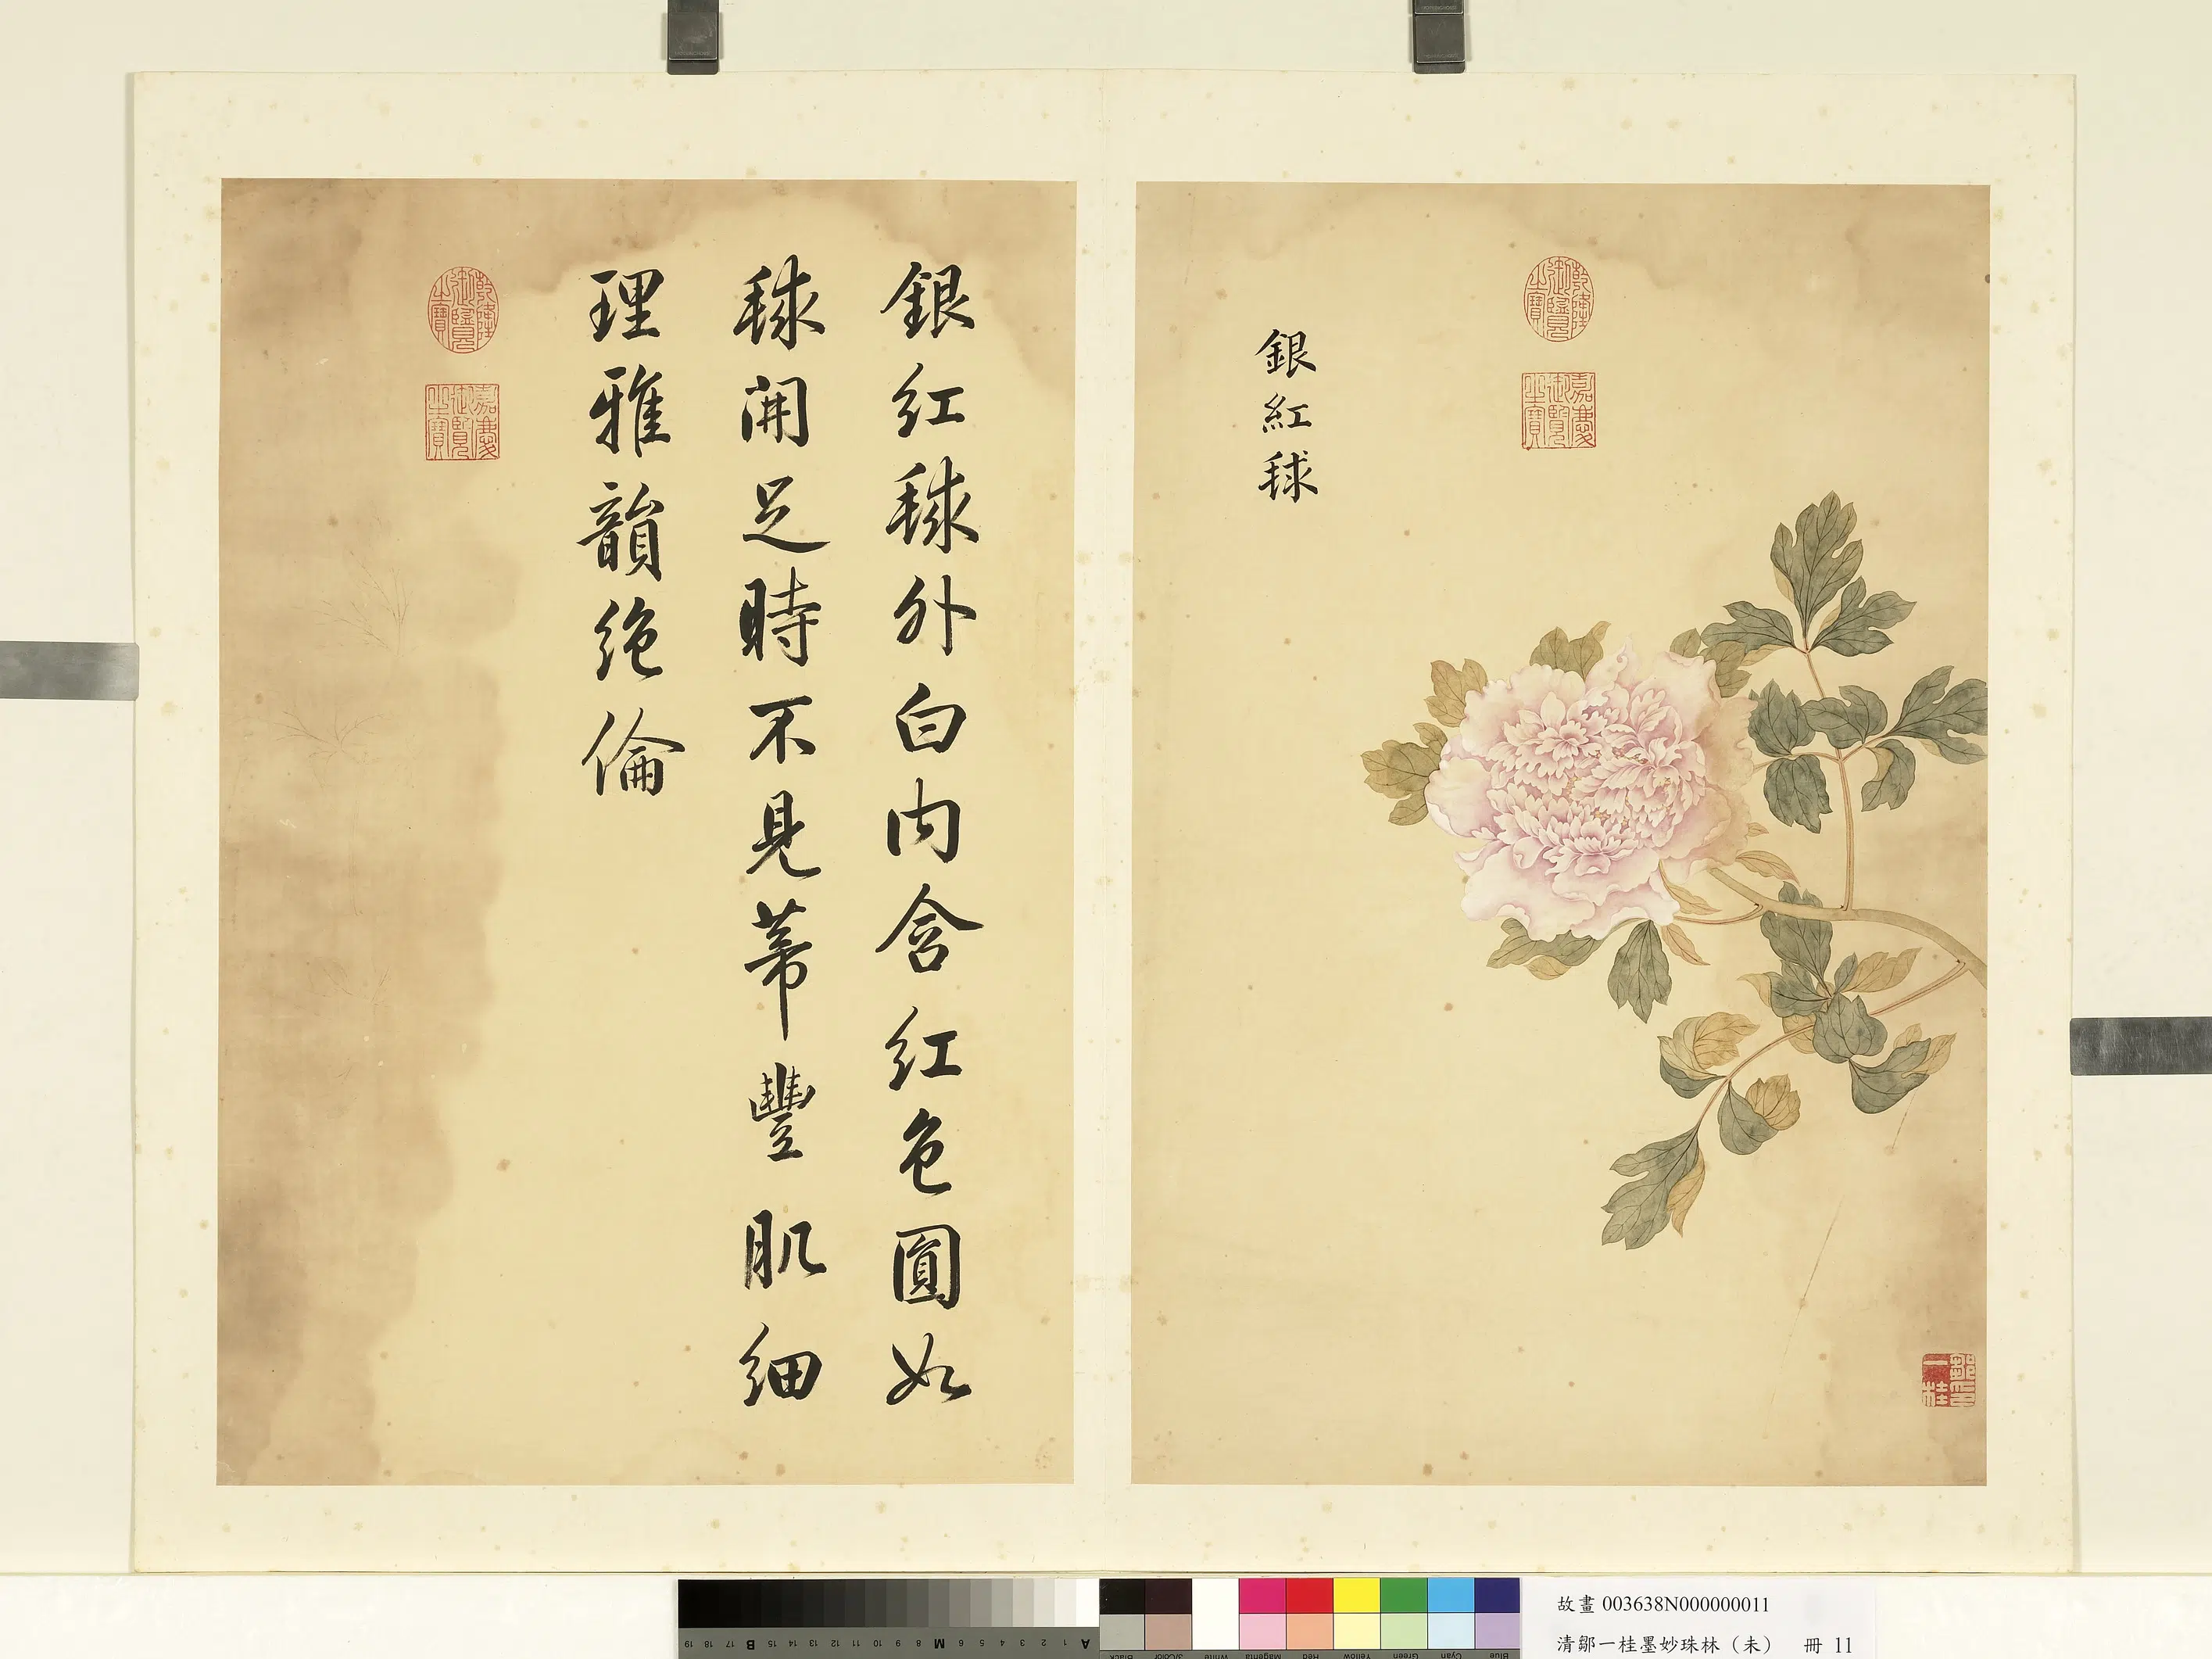 銀紅毬
乾隆御覽之寶
嘉慶御覽之寶
鄒一桂印
銀紅毬外白内含紅色圓如
毬開足時不見蒂豐肌細
理雅韻绝倫
乾隆御覽之寶
嘉慶御覽之寶
故畫 003638N000000011
清鄒一桂墨妙珠林（未） 冊 11
A 1 2 3 4 5 6 M 8 9 10 11 12 13 14 15 B 17 18 19
Black 3/Color White Magenta Red Yellow Green Cyan Blue